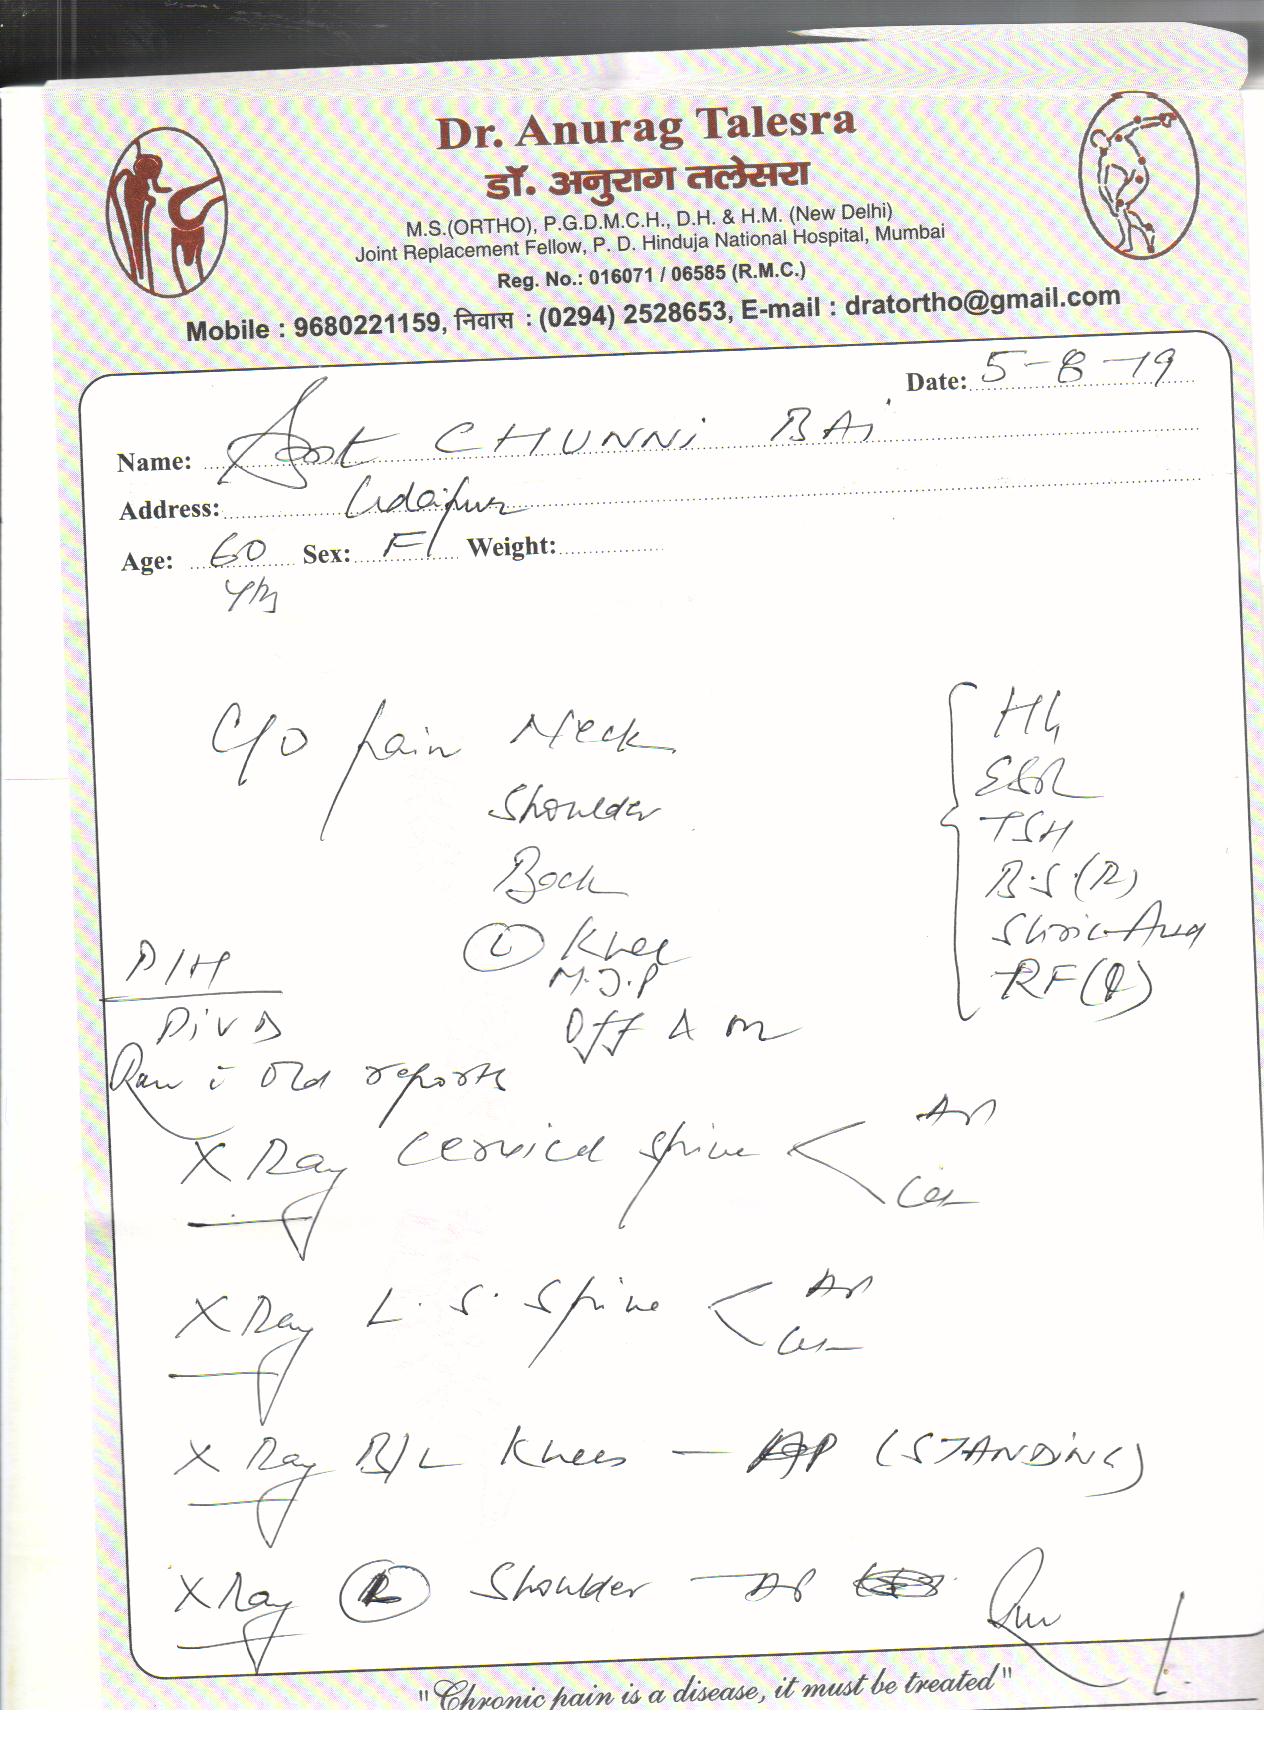 Dr. Anurag Talesra
डॉ. अनुराग तलेसरा
M.S.(ORTHO), P.G.D.M.C.H., D.H. & H.M. (New Delhi)
Joint Replacement Fellow, P. D. Hinduja National Hospital, Mumbai
Reg. No.: 016071 / 06585 (R.M.C.)
Mobile : 9680221159, निवास : (0294) 2528653, E-mail : dratortho@gmail.com
Date: 5-8-19
Name: CHUNNI BAi
Address: Udaipur
Age: 60 Sex: F Weight:
C/O pain Neck
Shoulder
Back
L Knee
M.J.P
Off
P/H
old reports
Hb
ESR
TSH
B.S.(R)
RF(Q)
X Ray Cervical spine < AP
X Ray L.S. Spine < AP
X Ray B/L Knees - AP (STANDING)
X Ray Shoulder - AP
"Chronic pain is a disease, it must be treated"